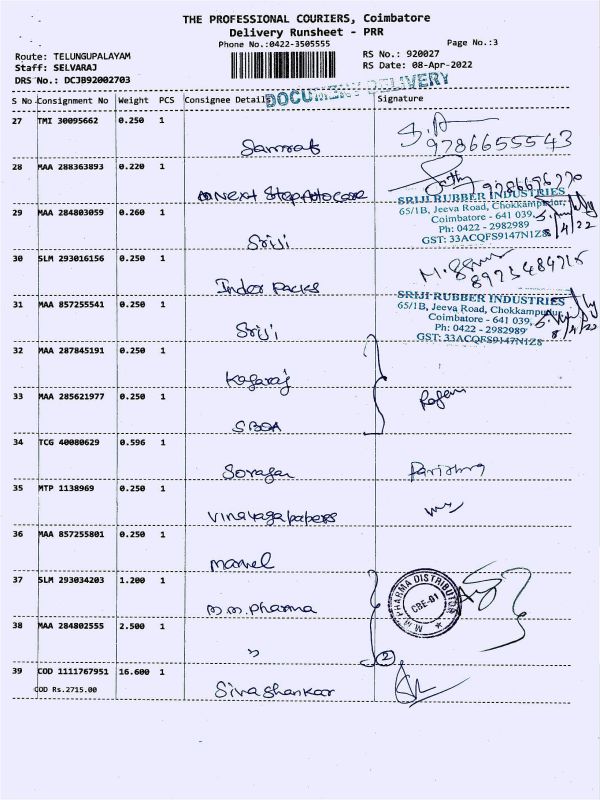 THE PROFESSIONAL COURIERS, Coimbatore
Delivery Runsheet - PRR
Phone No.:0422-3505555
Page No.:3
Route: TELUNGUPALAYAM
RS No.: 920027
Staff: SELVARAJ
RS Date: 08-Apr-2022
DRS No.: DCJB92002703
DOCUMENT DELIVERY
S No Consignment No Weight PCS Consignee Details Signature
27 TMI 30095662 0.250 1
Samrat
9786655543
28 MAA 288363893 0.220 1
Next Step Auto Care
29 MAA 284803059 0.260 1
Sriji
SRIJI RUBBER INDUSTRIES
65/1B, Jeeva Road, Chokkampudur,
Coimbatore - 641 039.
Ph: 0422 - 2982989
GST: 33ACQFS9147N1Z8
8/4/22
30 SLM 293016156 0.250 1
Indor Packs
31 MAA 857255541 0.250 1
Sriji
SRIJI RUBBER INDUSTRIES
65/1B, Jeeva Road, Chokkampudur,
Coimbatore - 641 039.
Ph: 0422 - 2982989
GST: 33ACQFS9147N1Z8
8/4/22
32 MAA 287845191 0.250 1
33 MAA 285621977 0.250 1
SBOA
34 TCG 40080629 0.596 1
35 MTP 1138969 0.250 1
Vinayaga papers
36 MAA 857255801 0.250 1
Marvel
37 SLM 293034203 1.200 1
m.m. pharma
M.M PHARMA DISTRIBUTOR
CBE-01
38 MAA 284802555 2.500 1
"
2
39 COD 1111767951 16.600 1
COD Rs.2715.00
Siva Shankar